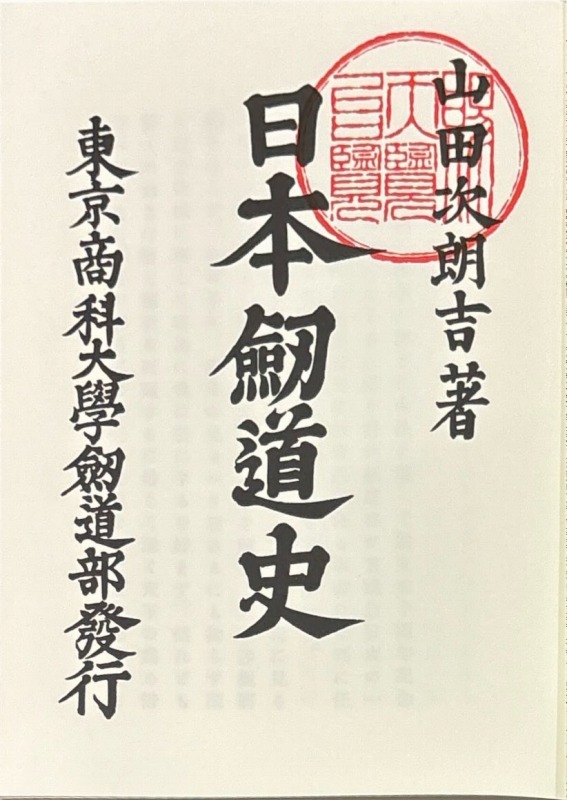 山田次朗吉著
日本劒道史
東京商科大學劒道部發行
天覽